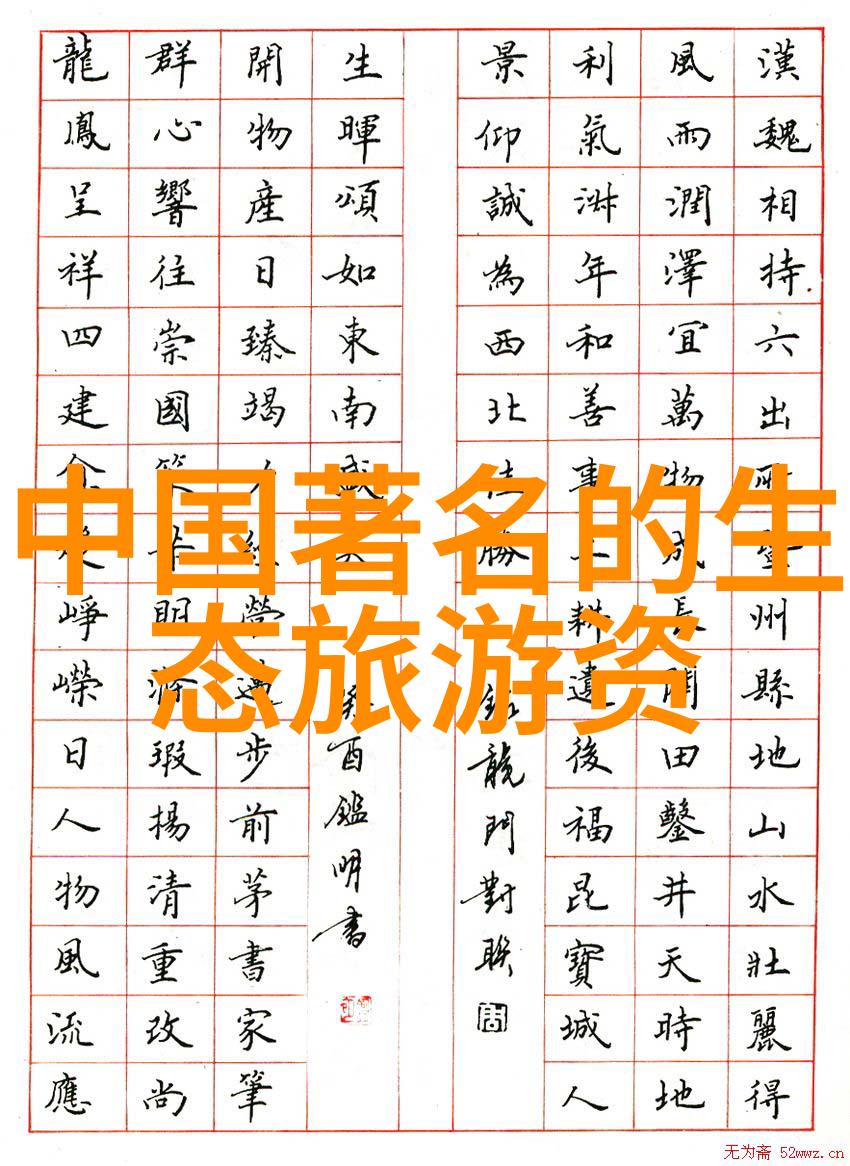 中国著名的生
态旅游资
漢魏相持六出州縣地山水壯麗得
風雨潤澤宜萬物成長開田鑿井天時地
利氣年和善事耕遺後福昆寶城人
景仰誠為西北佳勝
錄龍門對聯
生暉頌如東南盛
癸酉鑑明書
開物產日臻竭營步前茅書家筆
群心響往崇國策明滌瑕揚清重改尚
龍鳳呈祥四建企崢嶸日人物風流應
无为斋 52wwz.cn